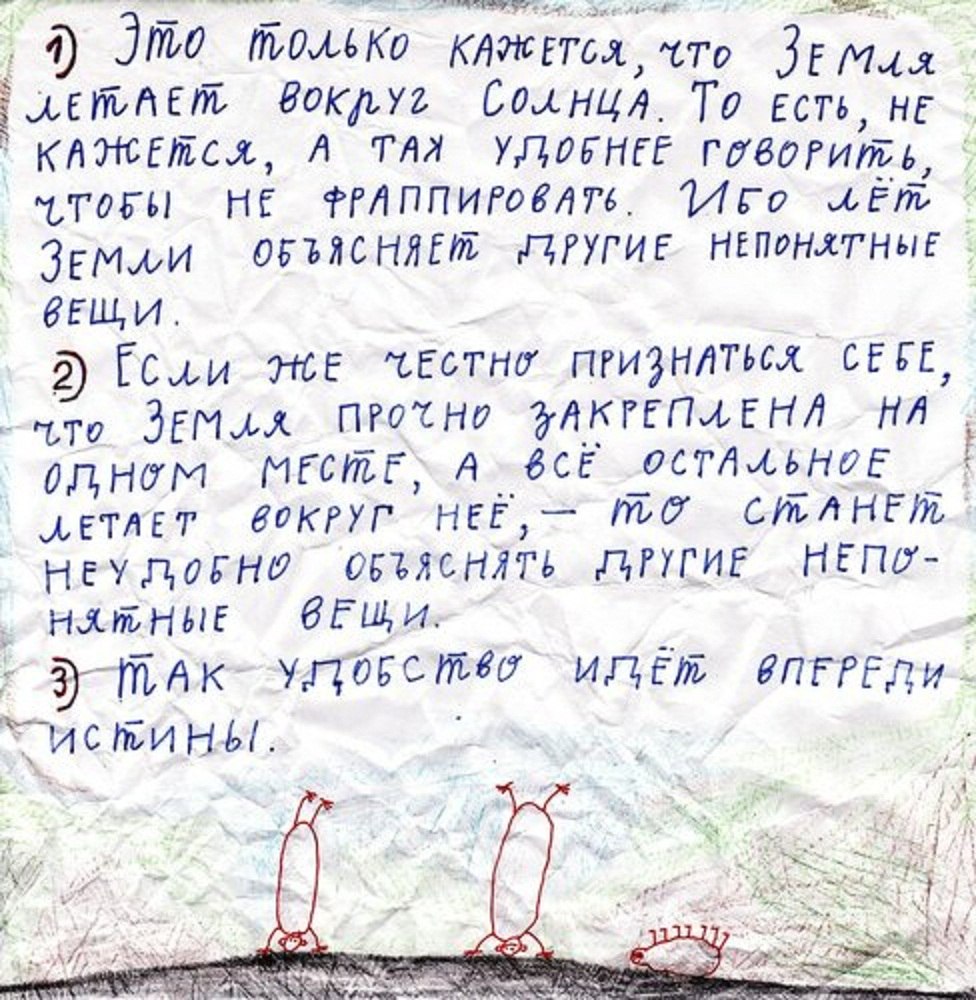 1) Это только кажется, что Земля
летает вокруг Солнца. То есть, не
кажется, а так удобнее говорить,
чтобы не фраппировать. Ибо лёт
Земли объясняет другие непонятные
вещи.
2) Если же честно признаться себе,
что Земля прочно закреплена на
одном месте, а всё остальное
летает вокруг неё, — то станет
неудобно объяснять другие непо-
нятные вещи.
3) Так удобство идёт впереди
истины.